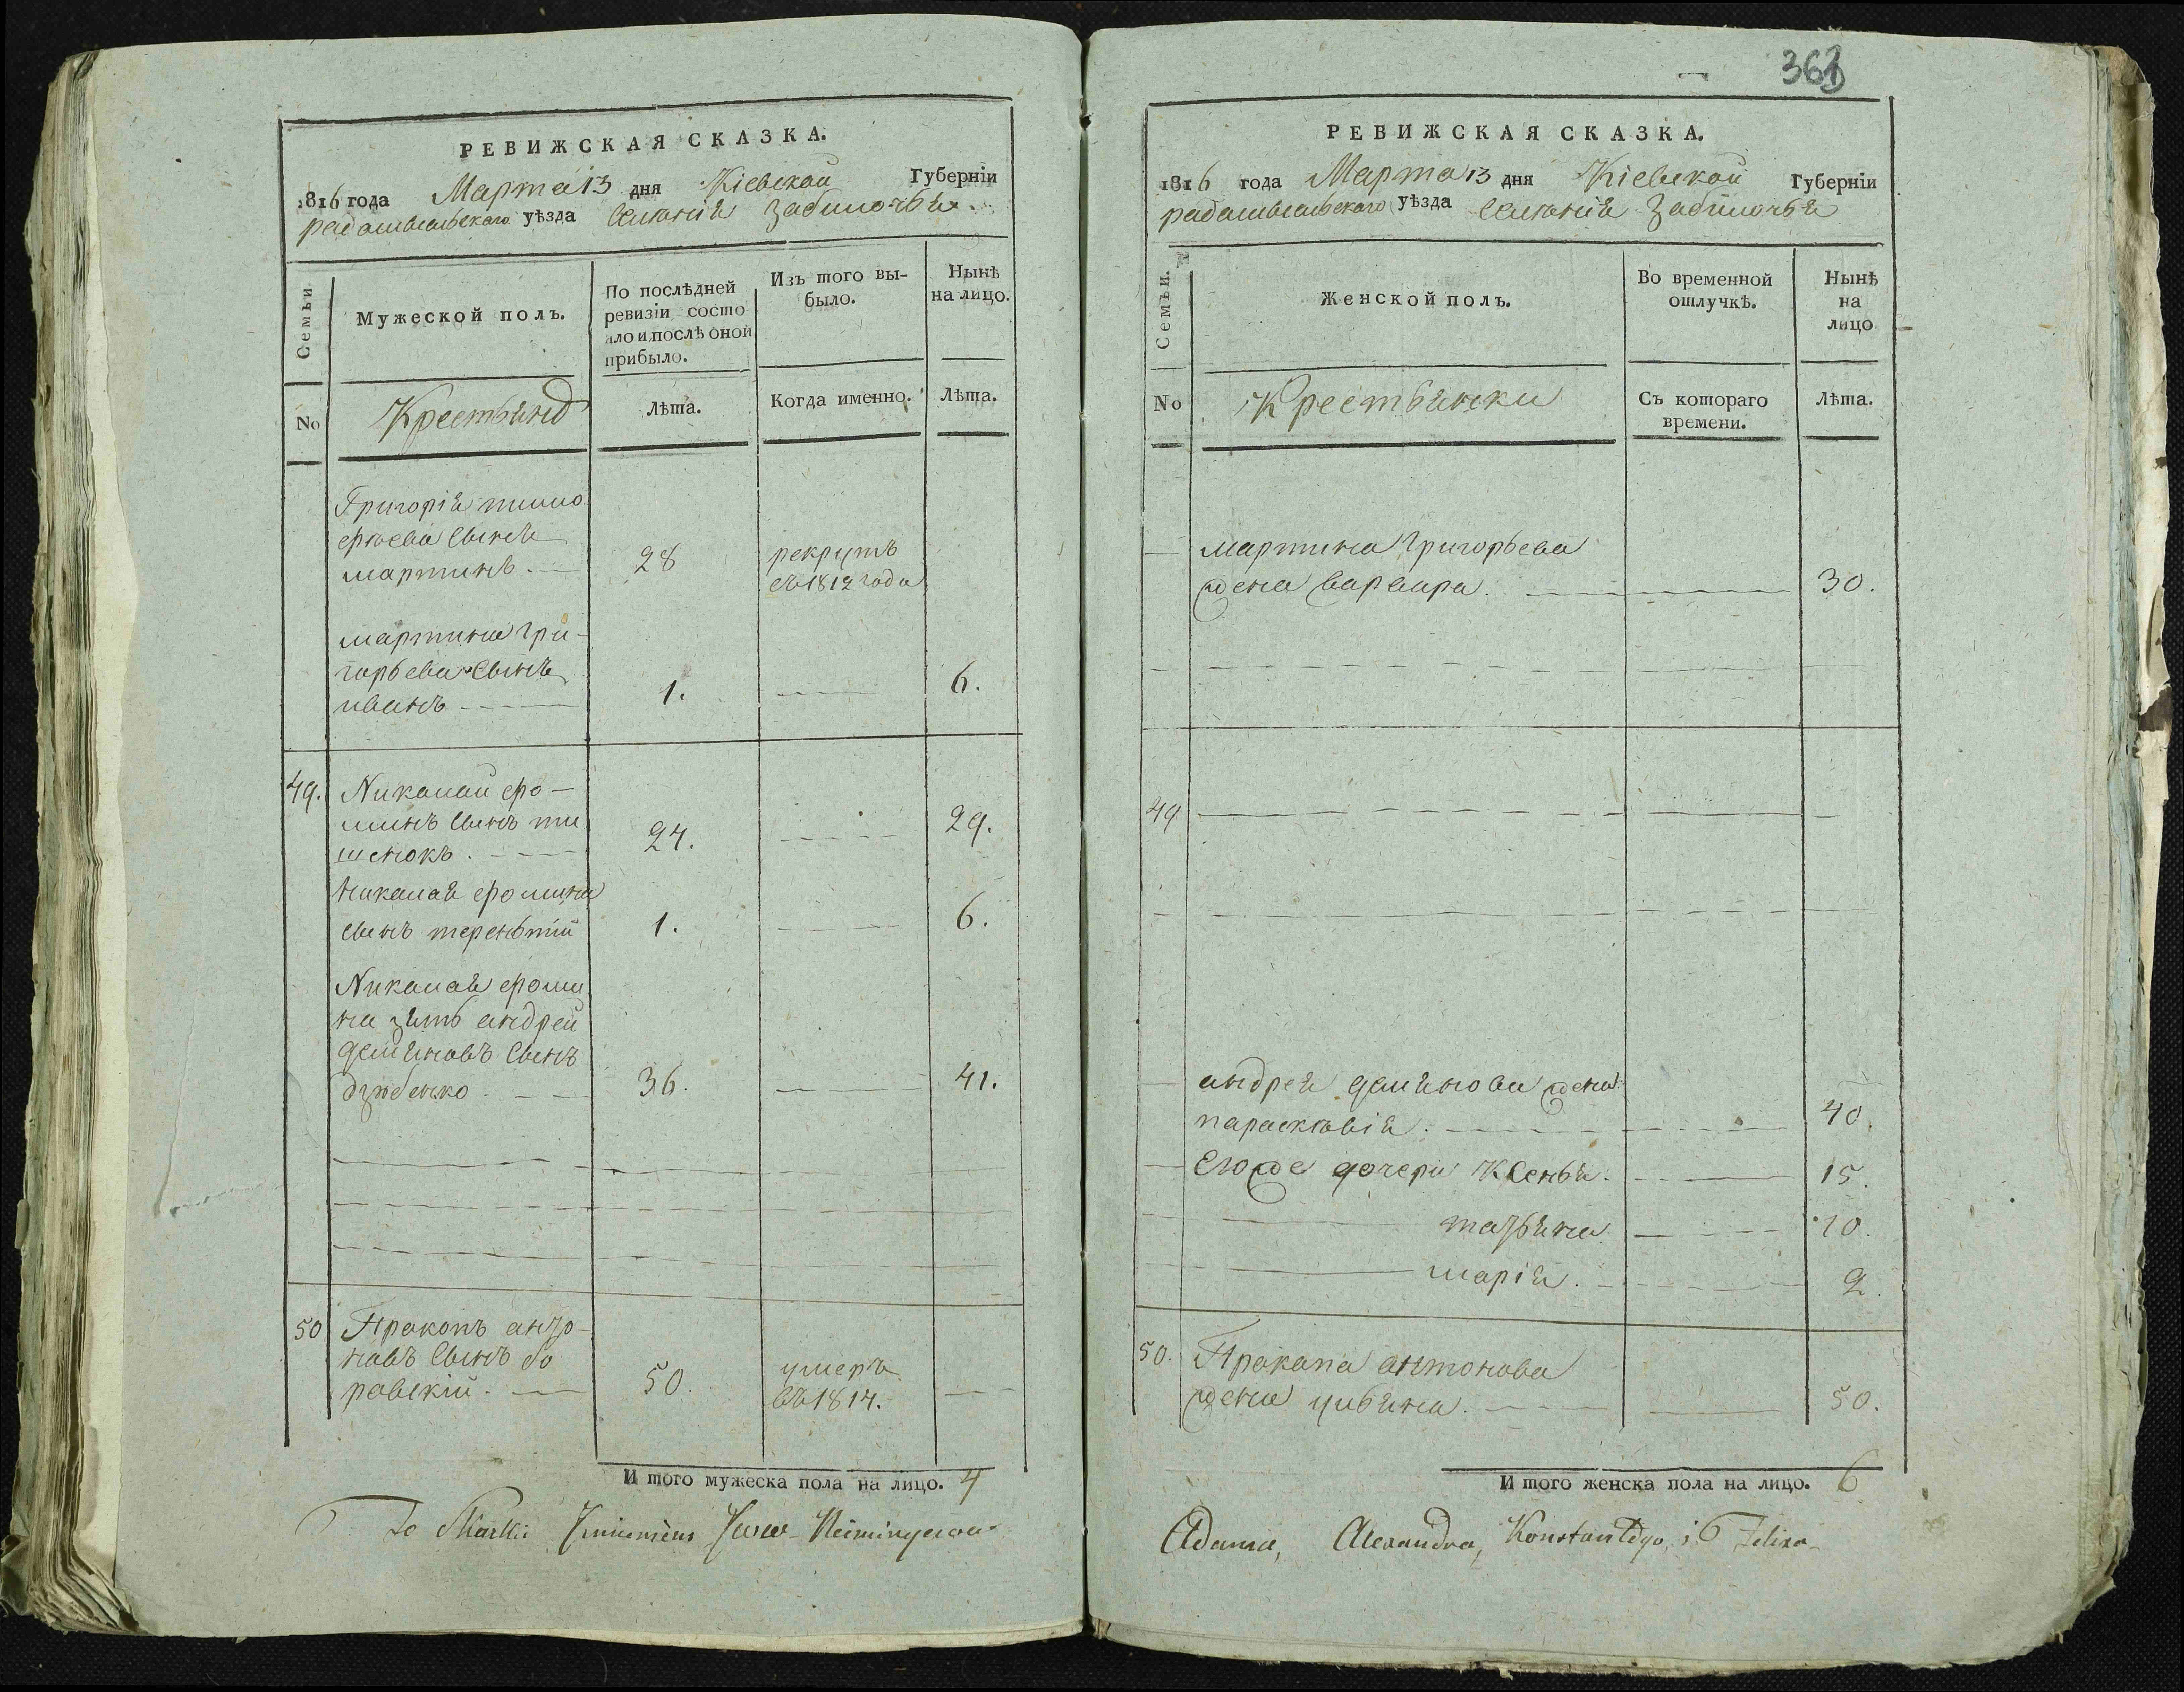 РЕВИЖСКАЯ СКАЗКА.
1816 года Марта 13 дня Кіевской Губерніи
радомысльского уѣзда селенія Забилочья
Семьи.
Мужеской полъ.
По послѣдней
ревизіи состо
яло и послѣ оной
прибыло.
Изъ того вы-
было.
Нынѣ
на лицо.
No
Крестьянъ
Лѣта.
Когда именно.
Лѣта.
Григорія тимо
ѳеева сынъ
мартинъ. 28 рекрутъ
съ 1812 года
мартина гри-
горьева сынъ
иванъ 1. 6.
49. Николай ѳо-
минъ сынъ ти
шенокъ. 24. 29.
николая ѳомина
сынъ терентій 1. 6.
Николая ѳоми
на зять андрей
демяновъ сынъ
дзюбенко. 36. 41.
50 Прокопъ анто-
новъ сынъ бо
ровскій. 50. умеръ
въ 1814.
И того мужеска пола на лицо. 4
363
РЕВИЖСКАЯ СКАЗКА.
1816 года Марта 13 дня Кіевской Губерніи
радомысльского уѣзда селенія Забилочья
Семьи.
Женской полъ.
Во временной
отлучкѣ.
Нынѣ
на
лицо
No
Крестьянки
Съ котораго
времени.
Лѣта.
мартина григорьева
жена варвара. 30.
49
андрея демянова жена
парасковія. 40.
Егоже дочери Ксенья. 15.
татьяна 10.
марія. 2.
50. Прокопа антонова
жена ульяна. 50.
И того женска пола на лицо. 6
Adama, Alexandra, Konstantego, i Felixa